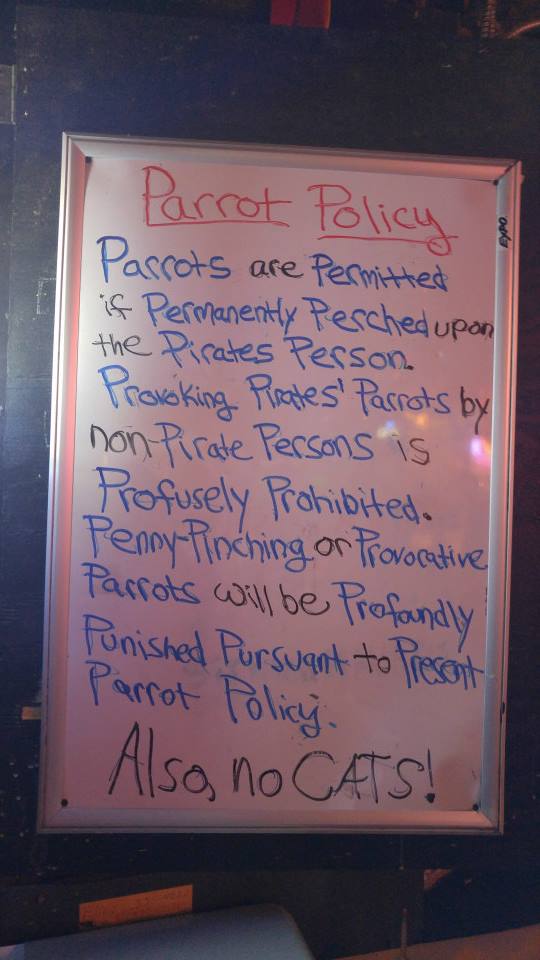 Parrot Policy
Parrots are Permitted
if Permanently Perched upon
the Pirates Person.
Provoking Pirates' Parrots by
non-Pirate Persons is
Profusely Prohibited.
Penny-Pinching or Provocative
Parrots will be Profoundly
Punished Pursuant to Present
Parrot Policy.
Also, no CATS!
EXPO